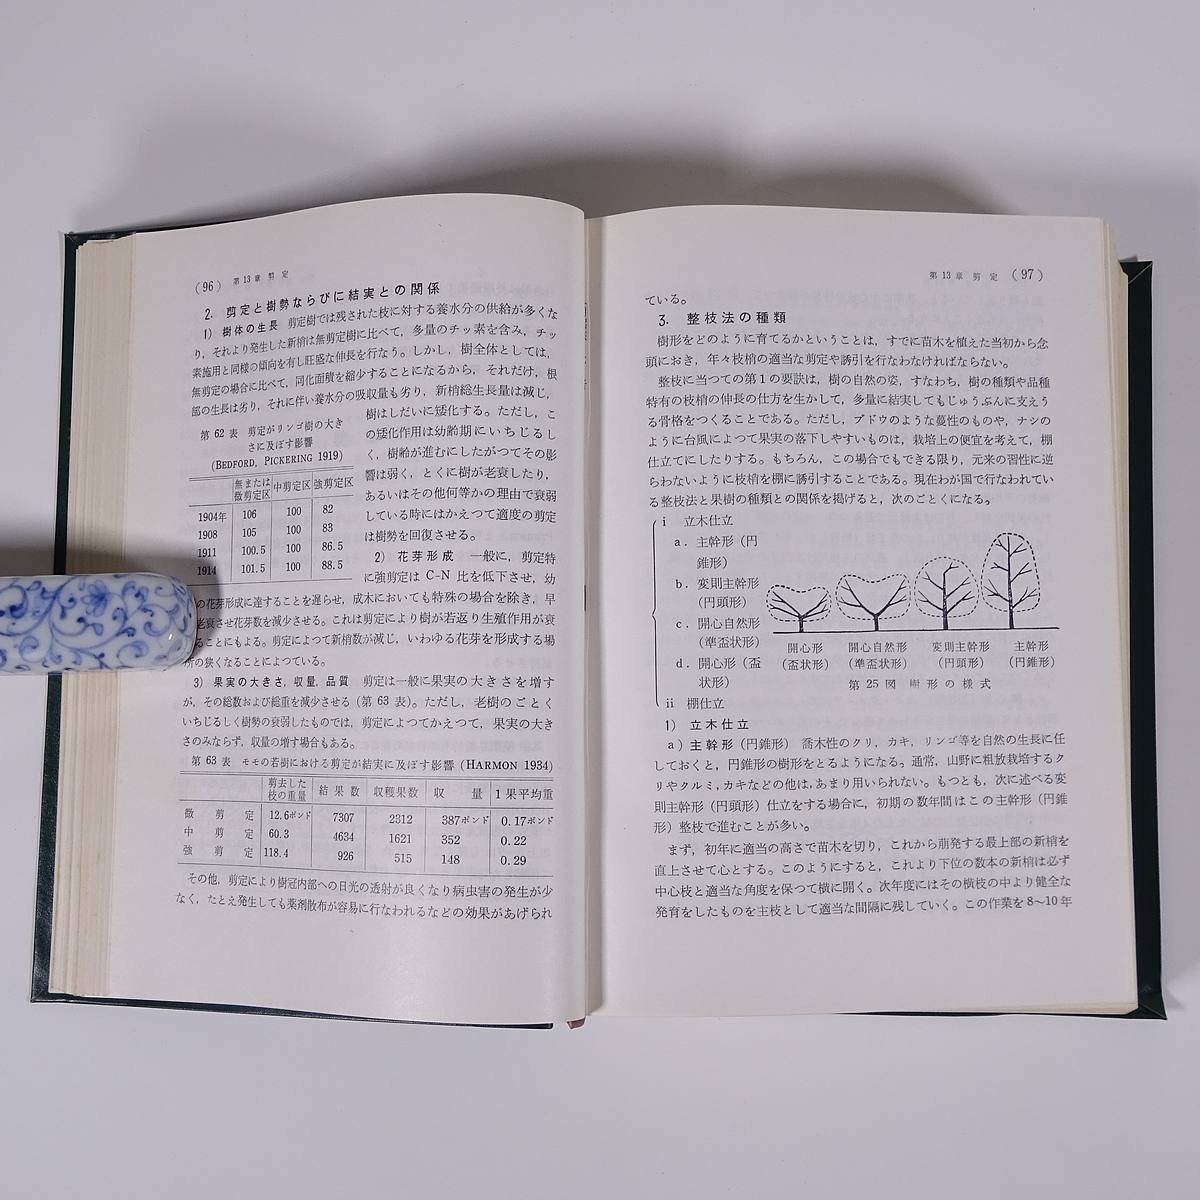 (96) 第13章 剪定
2. 剪定と樹勢ならびに結実との関係
1) 樹体の生長 剪定樹では残された枝に対する養水分の供給が多くな
り，それより発生した新梢は無剪定樹に比べて，多量のチッ素を含み，チッ
素施用と同様の傾向を有し旺盛な伸長を行なう。しかし，樹全体としては，
無剪定の場合に比べて，同化面積を縮少することになるから，それだけ，根
部の生長は劣り，それに伴い養水分の吸収量も劣り，新梢総生長量は減じ，
樹はしだいに矮化する。ただし，こ
の矮化作用は幼齢期にいちじるし
く，樹齢が進むにしたがつてその影
響は弱く，とくに樹が老衰したり，
あるいはその他何等かの理由で衰弱
している時にはかえつて適度の剪定
は樹勢を回復させる。
第62表 剪定がリンゴ樹の大き
さに及ぼす影響
(BEDFORD, PICKERING 1919)
無または微剪定区 中剪定区 強剪定区
1904年 106 100 82
1908 105 100 83
1911 100.5 100 86.5
1914 101.5 100 88.5
2) 花芽形成 一般に，剪定特
に強剪定は C-N 比を低下させ，幼
の花芽形成に達することを遅らせ，成木においても特殊の場合を除き，早
老衰させ花芽数を減少させる。これは剪定により樹が若返り生殖作用が衰
ることにもよる。剪定によつて新梢数が減じ，いわゆる花芽を形成する場
所の狭くなることによつている。
3) 果実の大きさ，収量，品質 剪定は一般に果実の大きさを増す
が，その総数および総重を減少させる (第63表)。ただし，老樹のごとく
いちじるしく樹勢の衰弱したものでは，剪定によつてかえつて，果実の大き
さのみならず，収量の増す場合もある。
第63表 モモの若樹における剪定が結実に及ぼす影響 (HARMON 1934)
剪去した枝の重量 結果数 収穫果数 収量 1果平均重
微剪定 12.6ポンド 7307 2312 387ポンド 0.17ポンド
中剪定 60.3 4634 1621 352 0.22
強剪定 118.4 926 515 148 0.29
その他，剪定により樹冠内部への日光の透射が良くなり病虫害の発生が少
なく，たとえ発生しても薬剤散布が容易に行なわれるなどの効果があげられ
第13章 剪定 (97)
ている。
3. 整枝法の種類
樹形をどのように育てるかということは，すでに苗木を植えた当初から念
頭におき，年々枝梢の適当な剪定や誘引を行なわなければならない。
整枝に当つての第1の要訣は，樹の自然の姿，すなわち，樹の種類や品種
特有の枝梢の伸長の仕方を生かして，多量に結実してもじゅうぶんに支えう
る骨格をつくることである。ただし，ブドウのような蔓性のものや，ナシの
ように台風によつて果実の落下しやすいものは，栽培上の便宜を考えて，棚
仕立てにしたりする。もちろん，この場合でもできる限り，元来の習性に逆
らわないように枝梢を棚に誘引することである。現在わが国で行なわれてい
る整枝法と果樹の種類との関係を掲げると，次のごとくになる。
i 立木仕立
a. 主幹形 (円
錐形)
b. 変則主幹形
(円頭形)
c. 開心自然形
(準盃状形)
d. 開心形 (盃
状形)
ii 棚仕立
開心形 開心自然形 変則主幹形 主幹形
(盃状形) (準盃状形) (円頭形) (円錐形)
第25図 樹形の様式
1) 立木仕立
a) 主幹形 (円錐形) 喬木性のクリ，カキ，リンゴ等を自然の生長に任
しておくと，円錐形の樹形をとるようになる。通常，山野に粗放栽培するク
リやクルミ，カキなどの他は，あまり用いられない。もつとも，次に述べる変
則主幹形 (円頭形) 仕立をする場合に，初期の数年間はこの主幹形 (円錐
形) 整枝で進むことが多い。
まず，初年に適当の高さで苗木を切り，これから萌発する最上部の新梢を
直上させて心とする。このようにすると，これより下位の数本の新梢は必ず
中心枝と適当な角度を保つて横に開く。次年度にはその横枝の中より健全な
発育をしたものを主枝として適当な間隔に残していく。この作業を8～10年